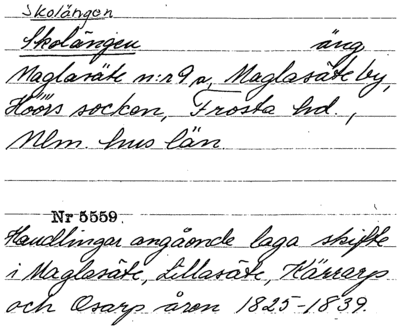 Skolängen
Skolängen äng
Maglasäte n:r 9 a, Maglasäte by,
Höörs socken, Frosta hd.,
Mlm. hus län
Nr 5559.
Handlingar angående laga skifte
i Maglasäte, Lillasäte, Kärrarp
och Osarp åren 1825-1839.